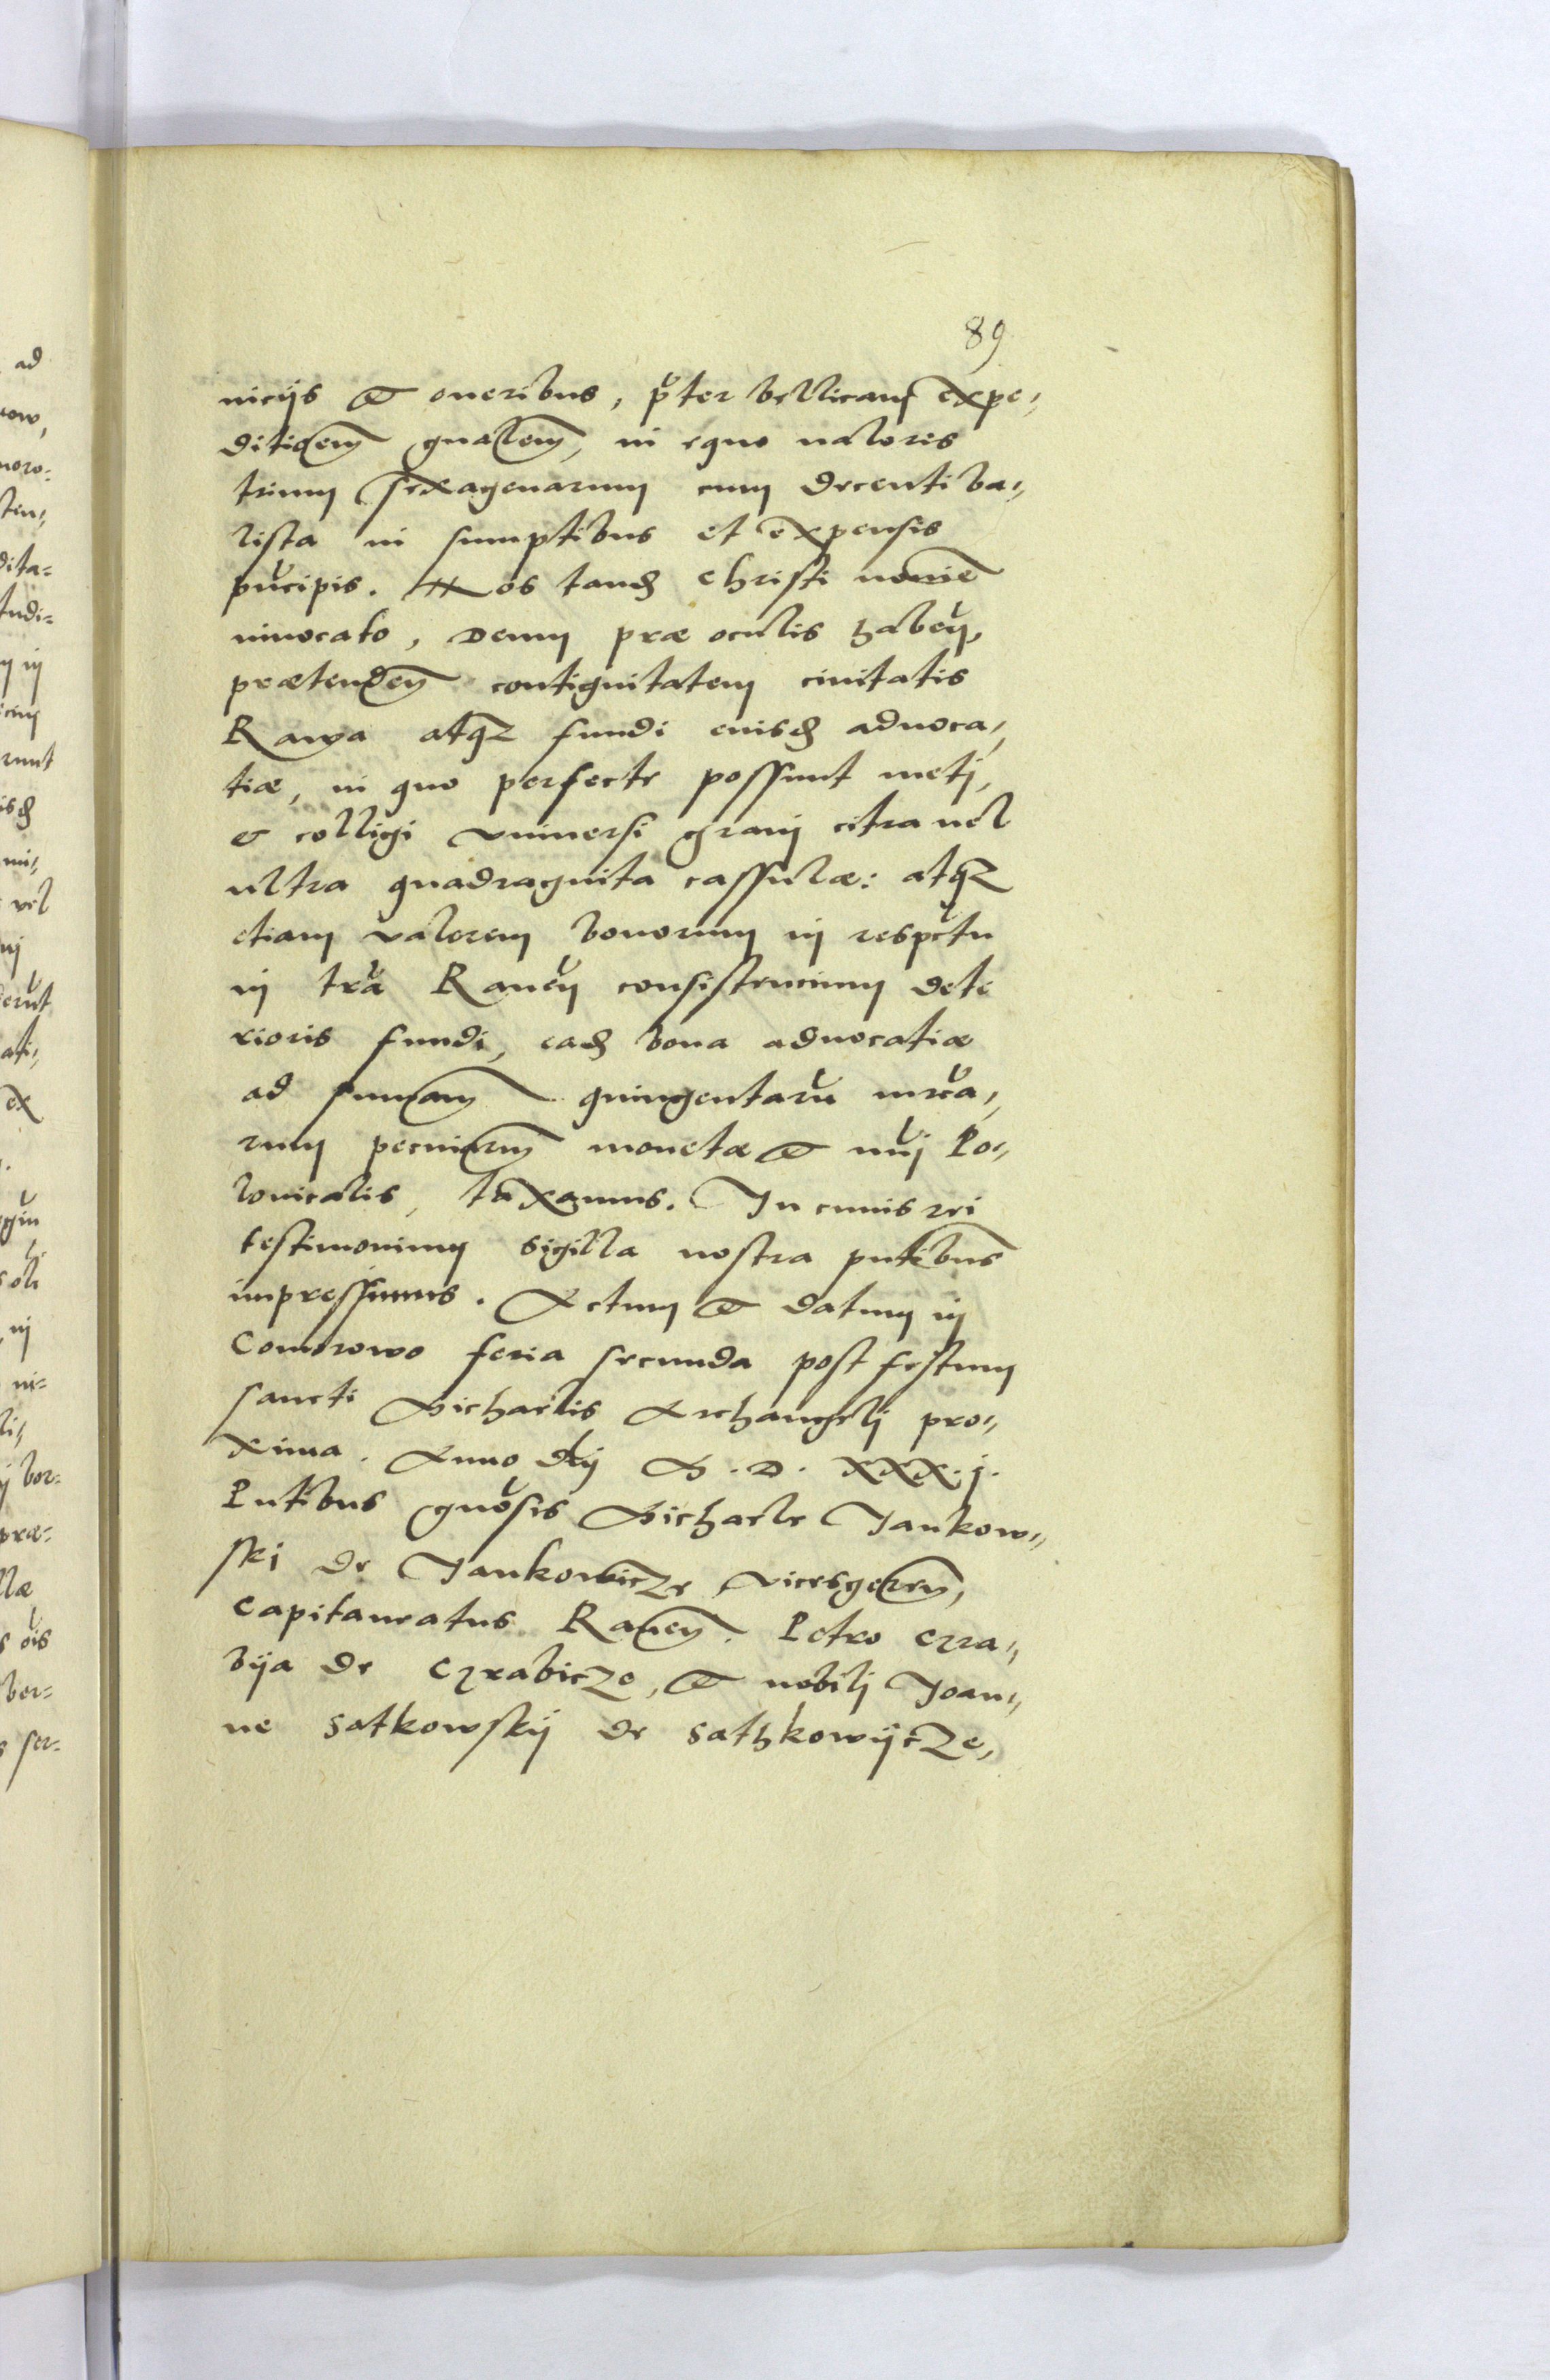 89
nicijs et oneribus, pͮter bellicam expe„
diticem gnalem, in equo valoris
trium sexagenarum cum decenti ba„
lista in sumptibus et expensis
pͮncipis. Nos tandꝫ Christi nomiē
invocato, Deum præ oculis habeͮn,
prætenden contiguitatem civitatis
Rawa atqꝫ fundi eiusdꝫ advoca„
tiæ, in quo perfecte possunt metj,
& colligi universi granj citra vel
ultra quadraginta cassulæ: atqꝫ
etiam valorem bonorum in respͮctu
in trͮa Raveͮn consistencium dete
rioris fundi, eadꝫ bona advocatiæ
ad sumam quingentarͮu mrcͮa„
rum pecuniarum monetæ et nuͮj Po„
lonicalis, taxamus. In cuius rei
testimonium sigilla nostra pntibus
impressimus. Actum et datum in
Comorowo feria secunda post festum
sancti Michaelis Archangelj pro„
xima. Anno dnj M. D. XXX.j.
Pntibus gnͮosis Michaele Jankow„
skj de Jankowicze vicesgeren,
Capitaneatus Raven. Petro Czra„
bija de Czrabicze, et nobilj Joan„
ne Satkowskij de Sathkowijcze,
ad